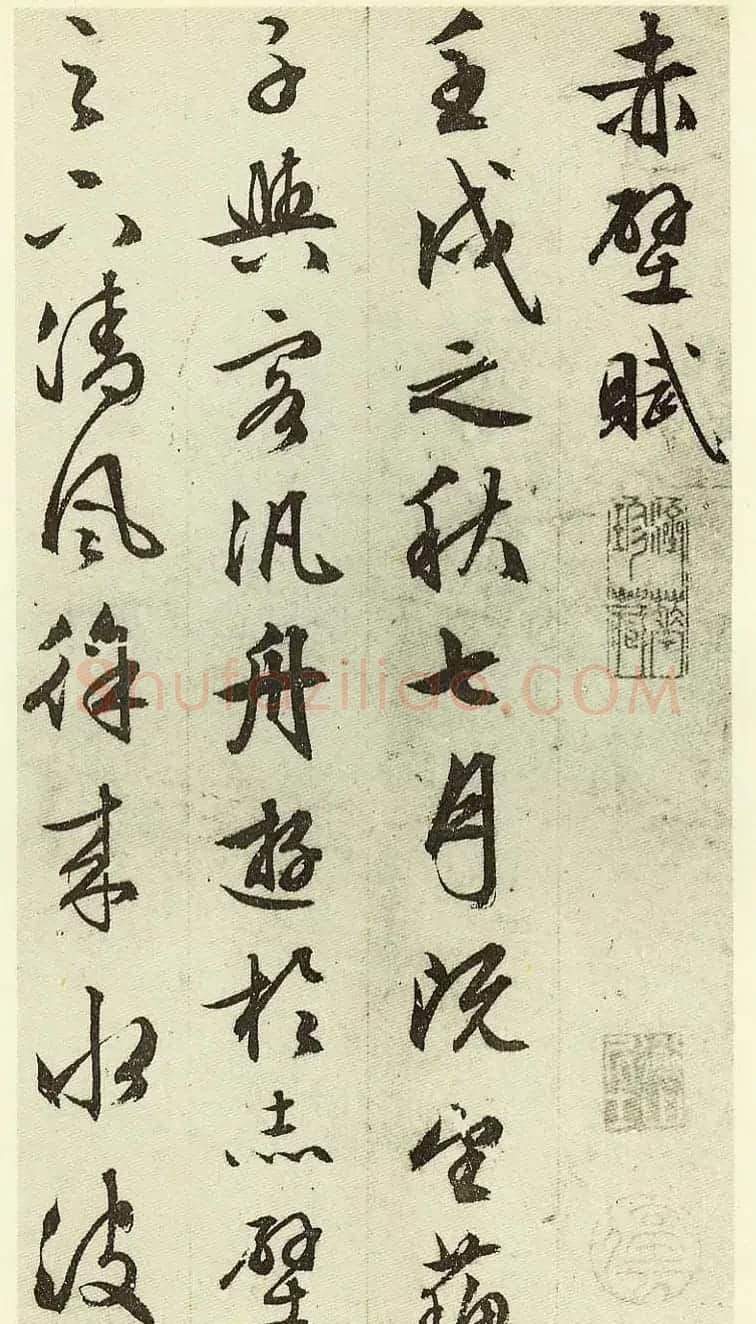 赤壁賦
壬戌之秋七月既望蘇
子與客汎舟遊於赤壁
之下清風徐來水波
Shufaziliao.COM